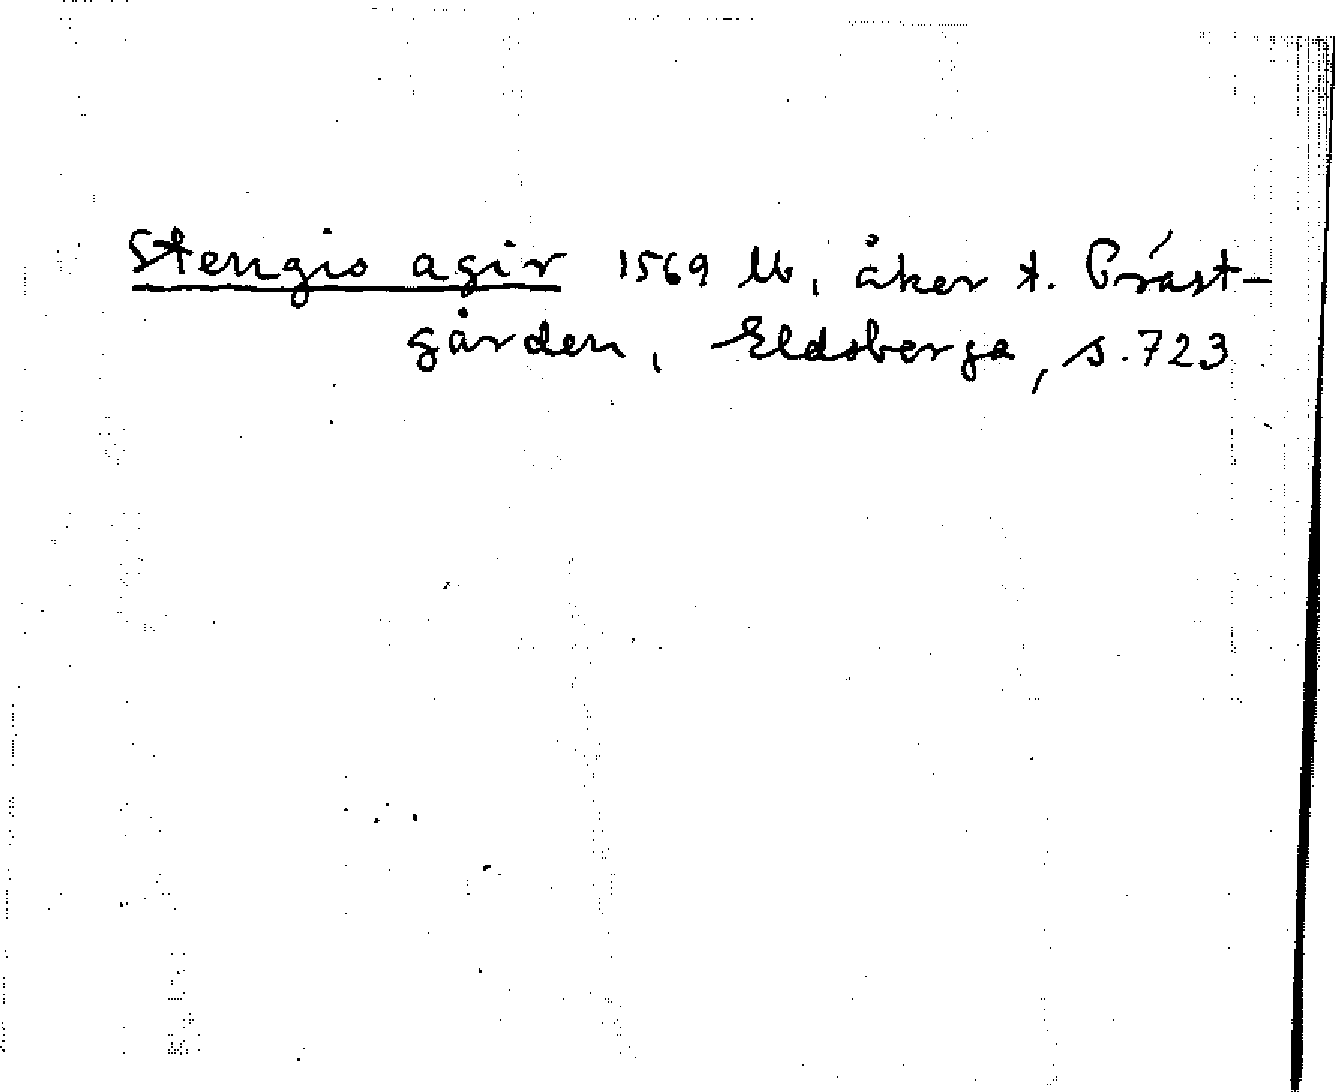 Stengis agir 1569 Lb, åker t. Präst-
gården, Eldsberga, s. 723